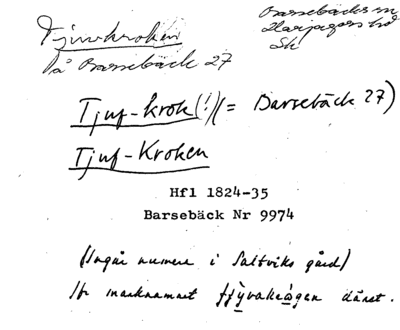 Tjuvkroken
på Barsebäck 27
Barsebäcks sn
Harjagers hd
Sk
Tjuf-krok (!) (= Barsebäck 27)
Tjuf-Kroken
Hfl 1824-35
Barsebäck Nr 9974
(Ingår numera i Saltviks gård)
Jfr marknamnet därst.